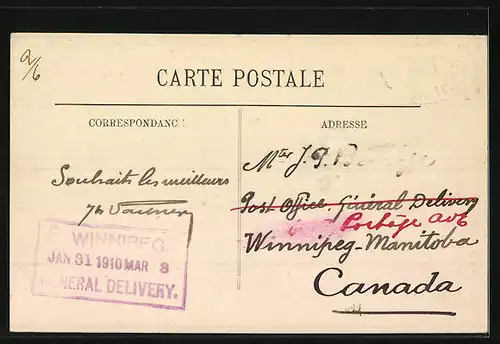 2/6
CARTE POSTALE
CORRESPONDANCE
ADRESSE
Souhaits les meilleurs
Mter J. P.
Post Office Général Delivery
Portège ave
Winnipeg-Manitoba
Canada
WINNIPEG
JAN 31 1910 MAR 3
GENERAL DELIVERY.